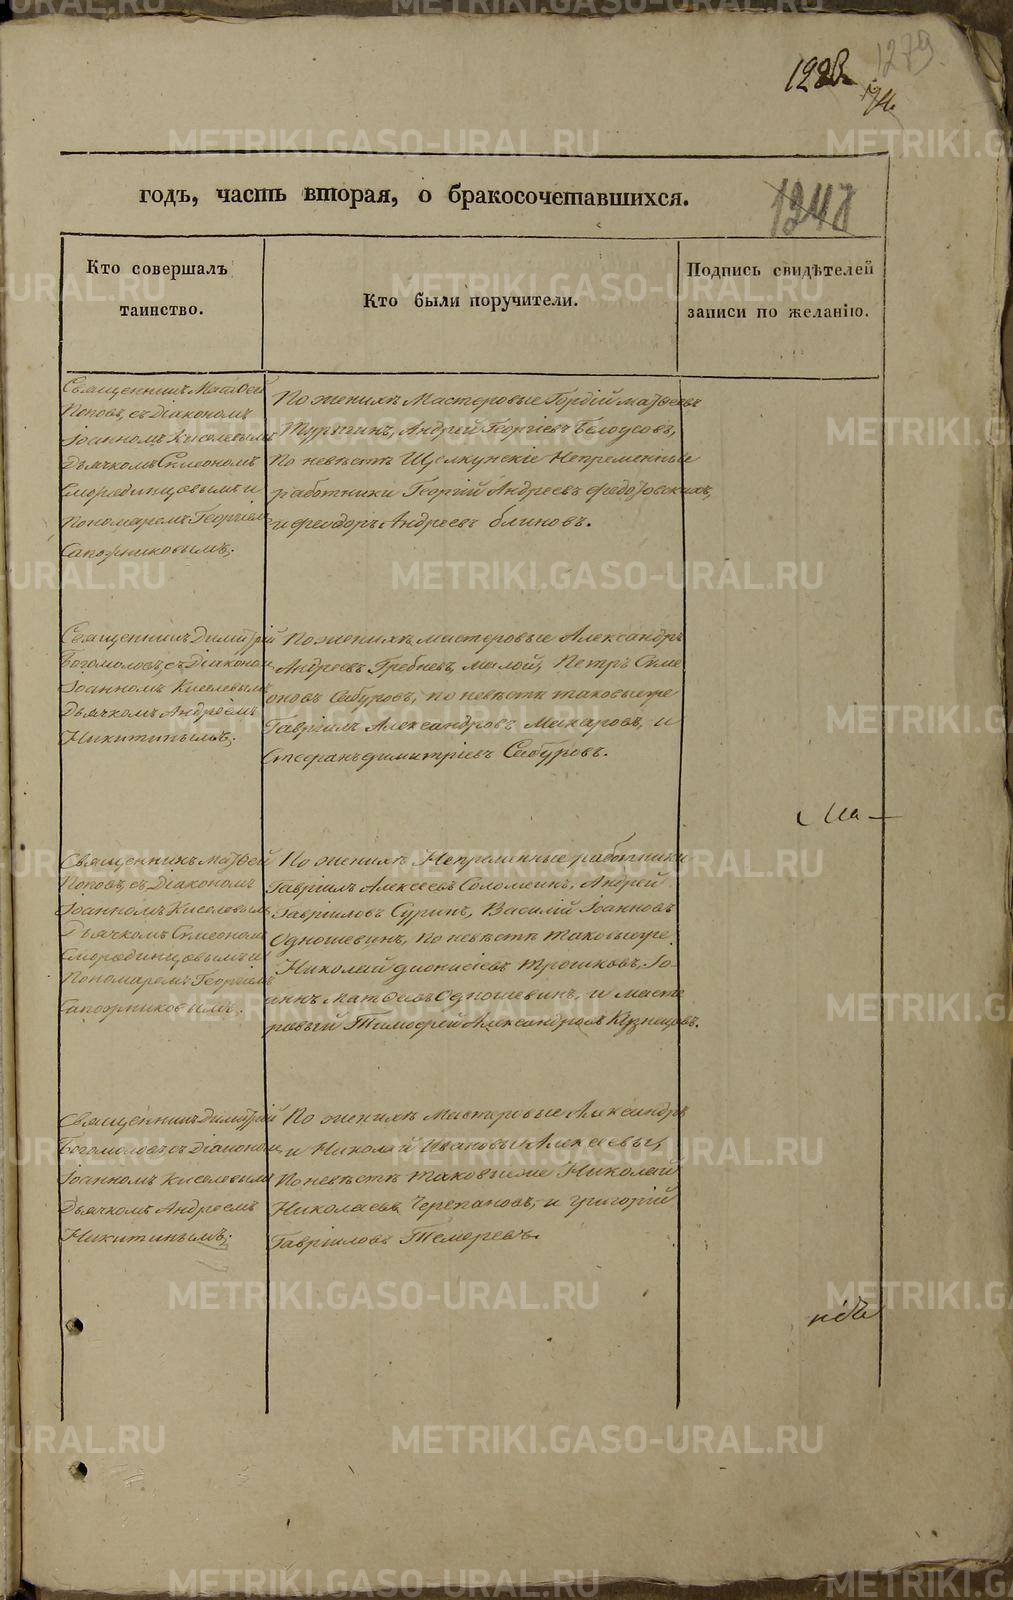 1279.
1228
годъ, часть вторая, о бракосочетавшихся.
1247
Кто совершалъ
таинство.
Кто были поручители.
Подпись свидѣтелей
записи по желанію.
Священникъ Матѳей
Поповъ, съ Діакономъ
Іоанномъ Киселевымъ
Дьячкомъ Симеономъ
Смородинцовымъ и
Пономаремъ Георгіемъ
Сапожниковымъ;
По женихѣ Мастеровые Гордій Матѳеевъ
Андрей Георгіевъ Белоусовъ,
По невѣстѣ Щелкунскіе Непременные
работники Георгій Андреевъ Федотовскихъ,
и Феодоръ Андреевъ Блиновъ.
Священникъ Димитрій
Богомоловъ, съ Діакономъ
Іоанномъ Киселевымъ
Дьячкомъ Андреемъ
Никитинымъ;
По женихѣ мастеровые Александръ
Андреевъ Гребневъ, Малой, Петръ Симе
оновъ Сабуровъ, по невѣстѣ таковые же
Гавріилъ Александровъ Макаровъ, и
Стефанъ Димитріевъ Сабуровъ.
Священникъ Матѳей
Поповъ, съ Діакономъ
Іоанномъ Киселевымъ
Дьячкомъ Симеономъ
Смородинцовымъ и
Пономаремъ Георгіемъ
Сапожниковымъ.
По женихѣ Непременные работники
Гавріилъ Алексеевъ Соломеинъ, Андрей
Гавріиловъ Суринъ, Василій Іоанновъ
Одношевинъ, по невѣстѣ таковые же
Николай Діонисіевъ Трошковъ, Іо-
аннъ Матѳеевъ Одношевинъ, и масте
ровый Тимофей Александровъ Кузнецовъ.
Священникъ Димитрій
Богомоловъ, съ Діакономъ
Іоанномъ Киселевымъ
Дьячкомъ Андреемъ
Никитинымъ;
По женихѣ Мастеровые Александръ
и Николай Ивановы Алексеевы,
По невѣстѣ таковые же Николай
Николаевъ Черепановъ, и Григорій
Гавріиловъ Темеревъ.
METRIKI.GASO-URAL.RU